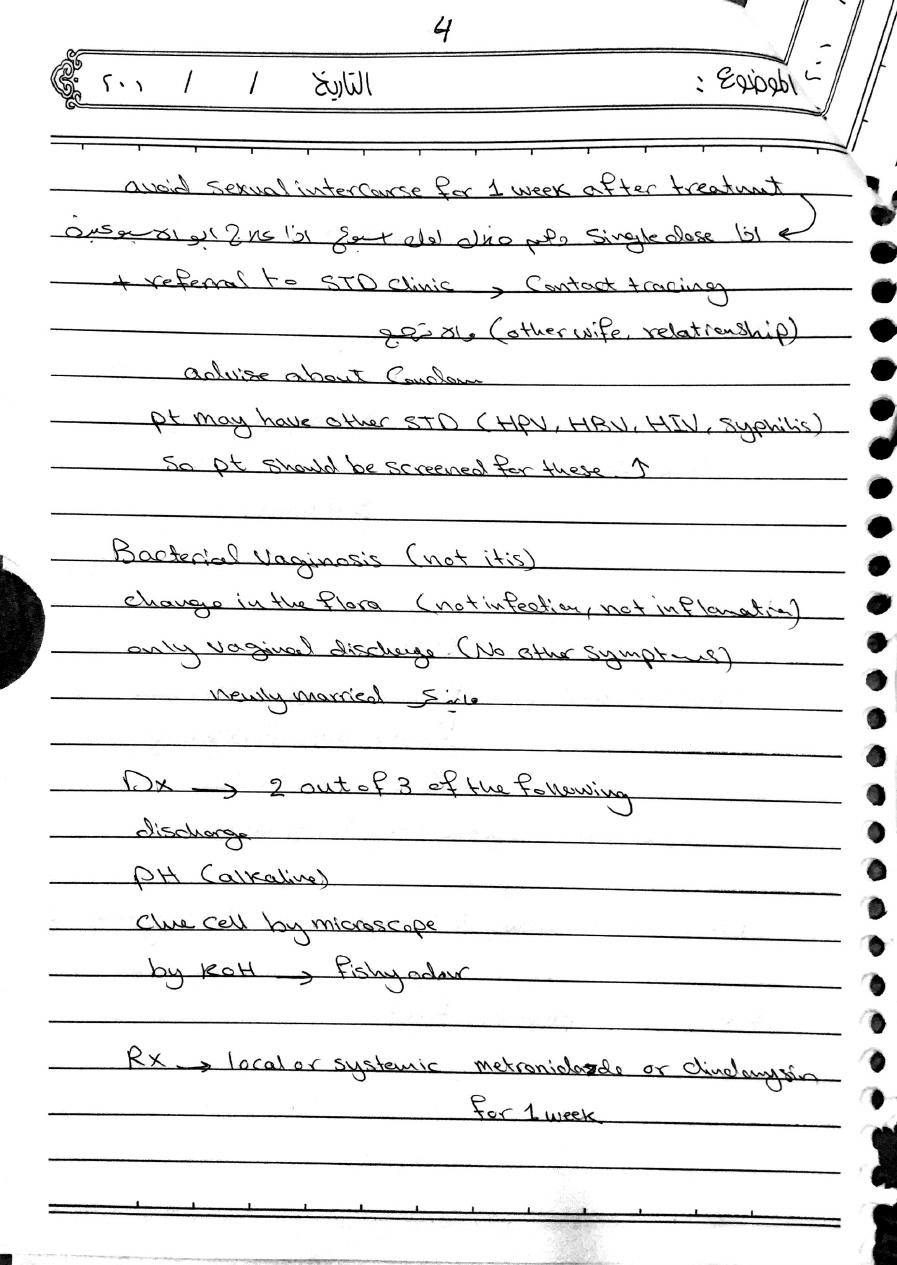 4
الموضوع : التاريخ / / ٢٠٠١
avoid sexual intercourse for 1 week after treatment
اذا single dose اول اسبوع اذا
+ referral to STD clinic → Contact tracing
(other wife, relationship)
advise about Condom
pt may have other STD (HPV, HBV, HIV, syphilis)
So pt should be screened for these ↑
Bacterial Vaginosis (not itis)
change in the flora (not infection, not inflamation)
only vaginal discharge (No other symptoms)
newly married
Dx → 2 out of 3 of the following
discharge
PH (alkaline)
Clue cell by microscope
by KOH → fishy odour
Rx → local or systemic metronidazole or clindamysin
for 1 week